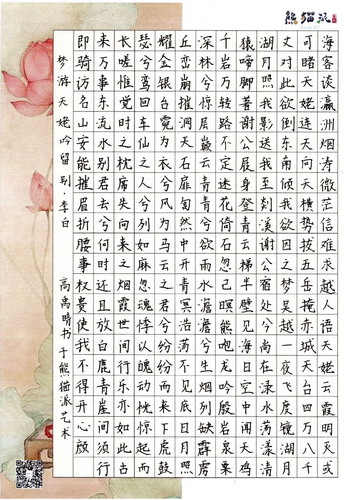 熊猫派
海客谈瀛洲烟涛微茫信难求越人语天姥云霞明灭或
可睹天姥连天向天横势拔五岳掩赤城天台四万八千
丈对此欲倒东南倾我欲因之梦吴越一夜飞度镜湖月
湖月照我影送我至剡溪谢公宿处今尚在渌水荡漾清
猿啼脚著谢公屐身登青云梯半壁见海日空中闻天鸡
千岩万转路不定迷花倚石忽已暝熊咆龙吟殷岩泉栗
深林兮惊层巅云青青兮欲雨水澹澹兮生烟列缺霹雳
丘峦崩摧洞天石扉訇然中开青冥浩荡不见底日月照
耀金银台霓为衣兮风为马云之君兮纷纷而来下虎鼓
瑟兮鸾回车仙之人兮列如麻忽魂悸以魄动恍惊起而
长嗟惟觉时之枕席失向来之烟霞世间行乐亦如此古
来万事东流水别君去兮何时还且放白鹿青崖间须行
即骑访名山安能摧眉折腰事权贵使我不得开心颜
梦游天姥吟留别·李白
高禹晴书于熊猫派艺术